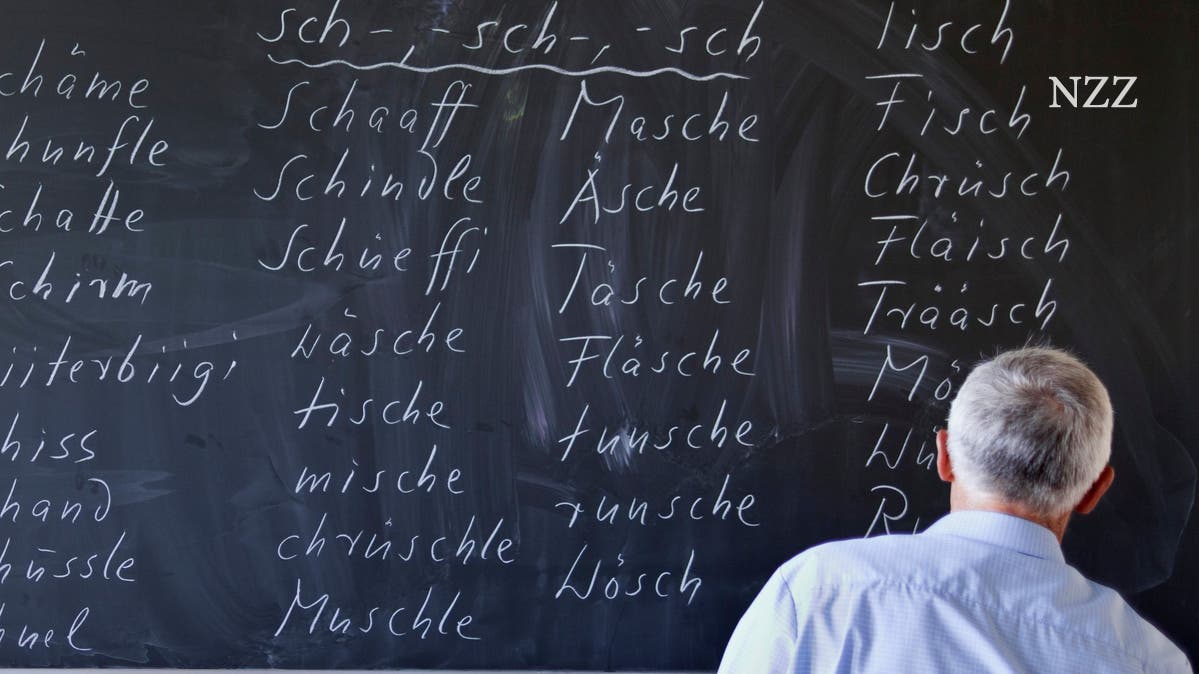 sch-, -sch-, -sch
chäme
hunfle
chatte
chirm
iiterbiigi
hiss
hand
hüssle
Schaaff
Schindle
Schüeffi
wäsche
tische
mische
chrüschle
Muschle
Masche
Äsche
Täsche
Fläsche
tuusche
ruusche
Wösch
Tisch
Fisch
Chrüsch
Fläisch
Trääsch
Mö
NZZ